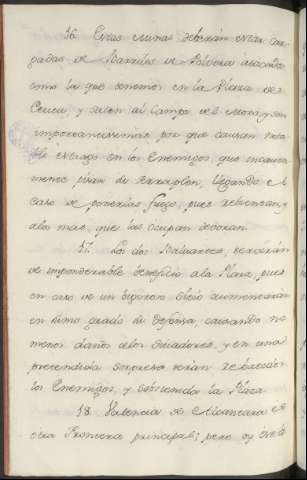 16. Estas minas deberán estar car-
gadas de Barriles de Polvora atacados
como las que tenemos en la Plaza de
Ceuta, y salen al Campo del Moro, y son
importantisimas por que causan nota-
ble estrago en los Enemigos, que incauta-
mente pisan su terraplen, llegando el
caso de ponerlas fuego, pues rebientan, y
alos mas, que las ocupan devoran.
17. Los dos Baluartes, servirán
de imponderable beneficio ala Plaza, pues
en caso de un vigoroso sitio aumentarán
en sumo grado su defensa, causando no
menos daños alos Sitiadores, y en una
pretendida sorpresa serian rebatidos
los Enemigos, y sostenida la Plaza
18. Valencia de Alcantara es
otra Frontera principal; pero oy está